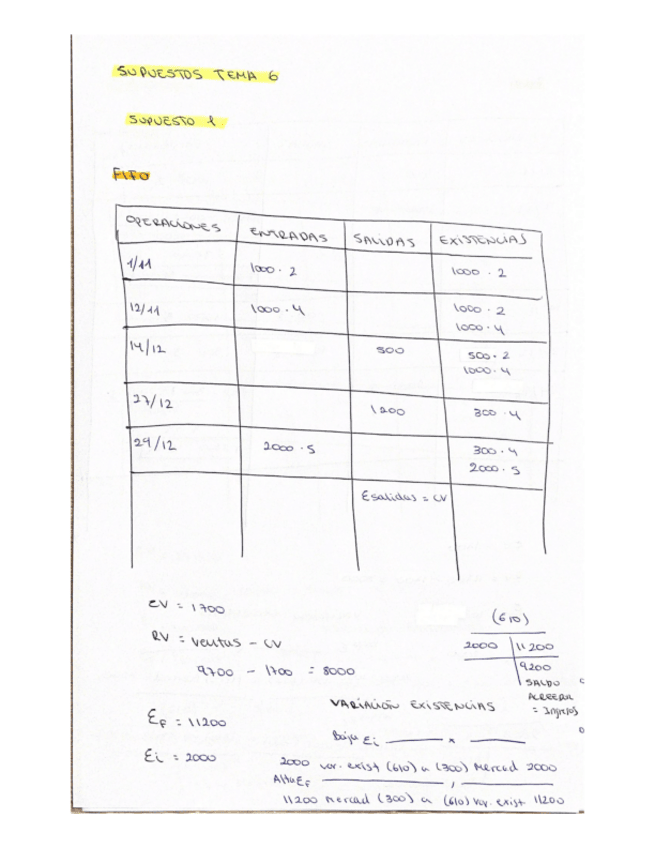 SUPUESTOS TEMA 6
SUPUESTO 1
FIFO
OPERACIONES ENTRADAS SALIDAS EXISTENCIAS
1/11 1000 · 2 1000 · 2
12/11 1000 · 4 1000 · 2
1000 · 4
14/12 500 500 · 2
1000 · 4
27/12 1200 300 · 4
29/12 2000 · 5 300 · 4
2000 · 5
Esalidas = CV
CV = 1700
RV = ventas - CV
9700 - 1700 = 8000
(610)
2000 11200
9200
SALDO
ACREEDOR
= Ingresos
VARIACIÓN EXISTENCIAS
Ef = 11200
Ei = 2000
Baja Ei x
2000 var. exist (610) a (300) Mercad 2000
Alta Ef
11200 Mercad (300) a (610) var. exist 11200